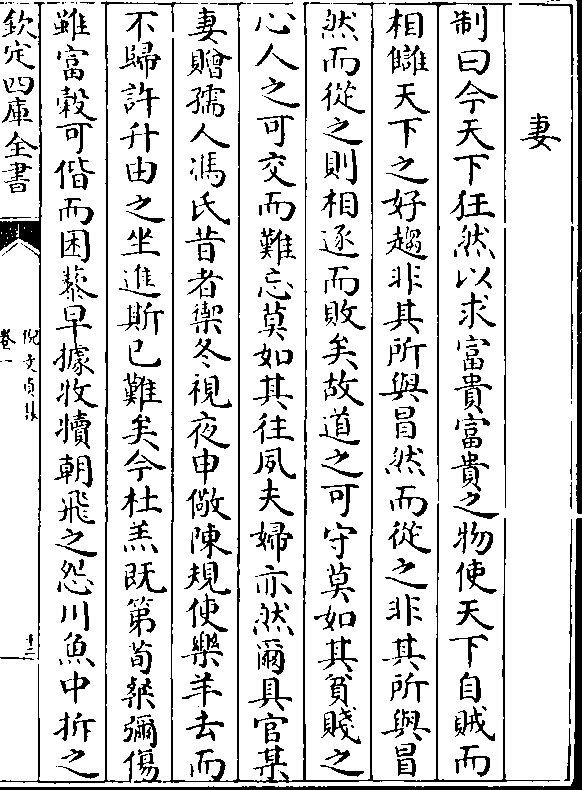 妻
制曰今天下狂然以求富貴富貴之物使天下自賊而
相讎天下之好趨非其所與冒然而從之非其所與冒
然而從之則相逐而敗矣故道之可守莫如其貧賤之
心人之可交而難忘莫如其往夙夫婦亦然爾具官某
妻贈孺人馮氏昔者禦冬視夜申儆陳規使樂羊去而
不歸許升由之坐進斯已難矣今杜羔既第荀粲彌傷
雖富榖可偕而困蔾早據牧犢朝飛之怨川魚中拆之
欽定四庫全書
倪文貞集
卷一
十二